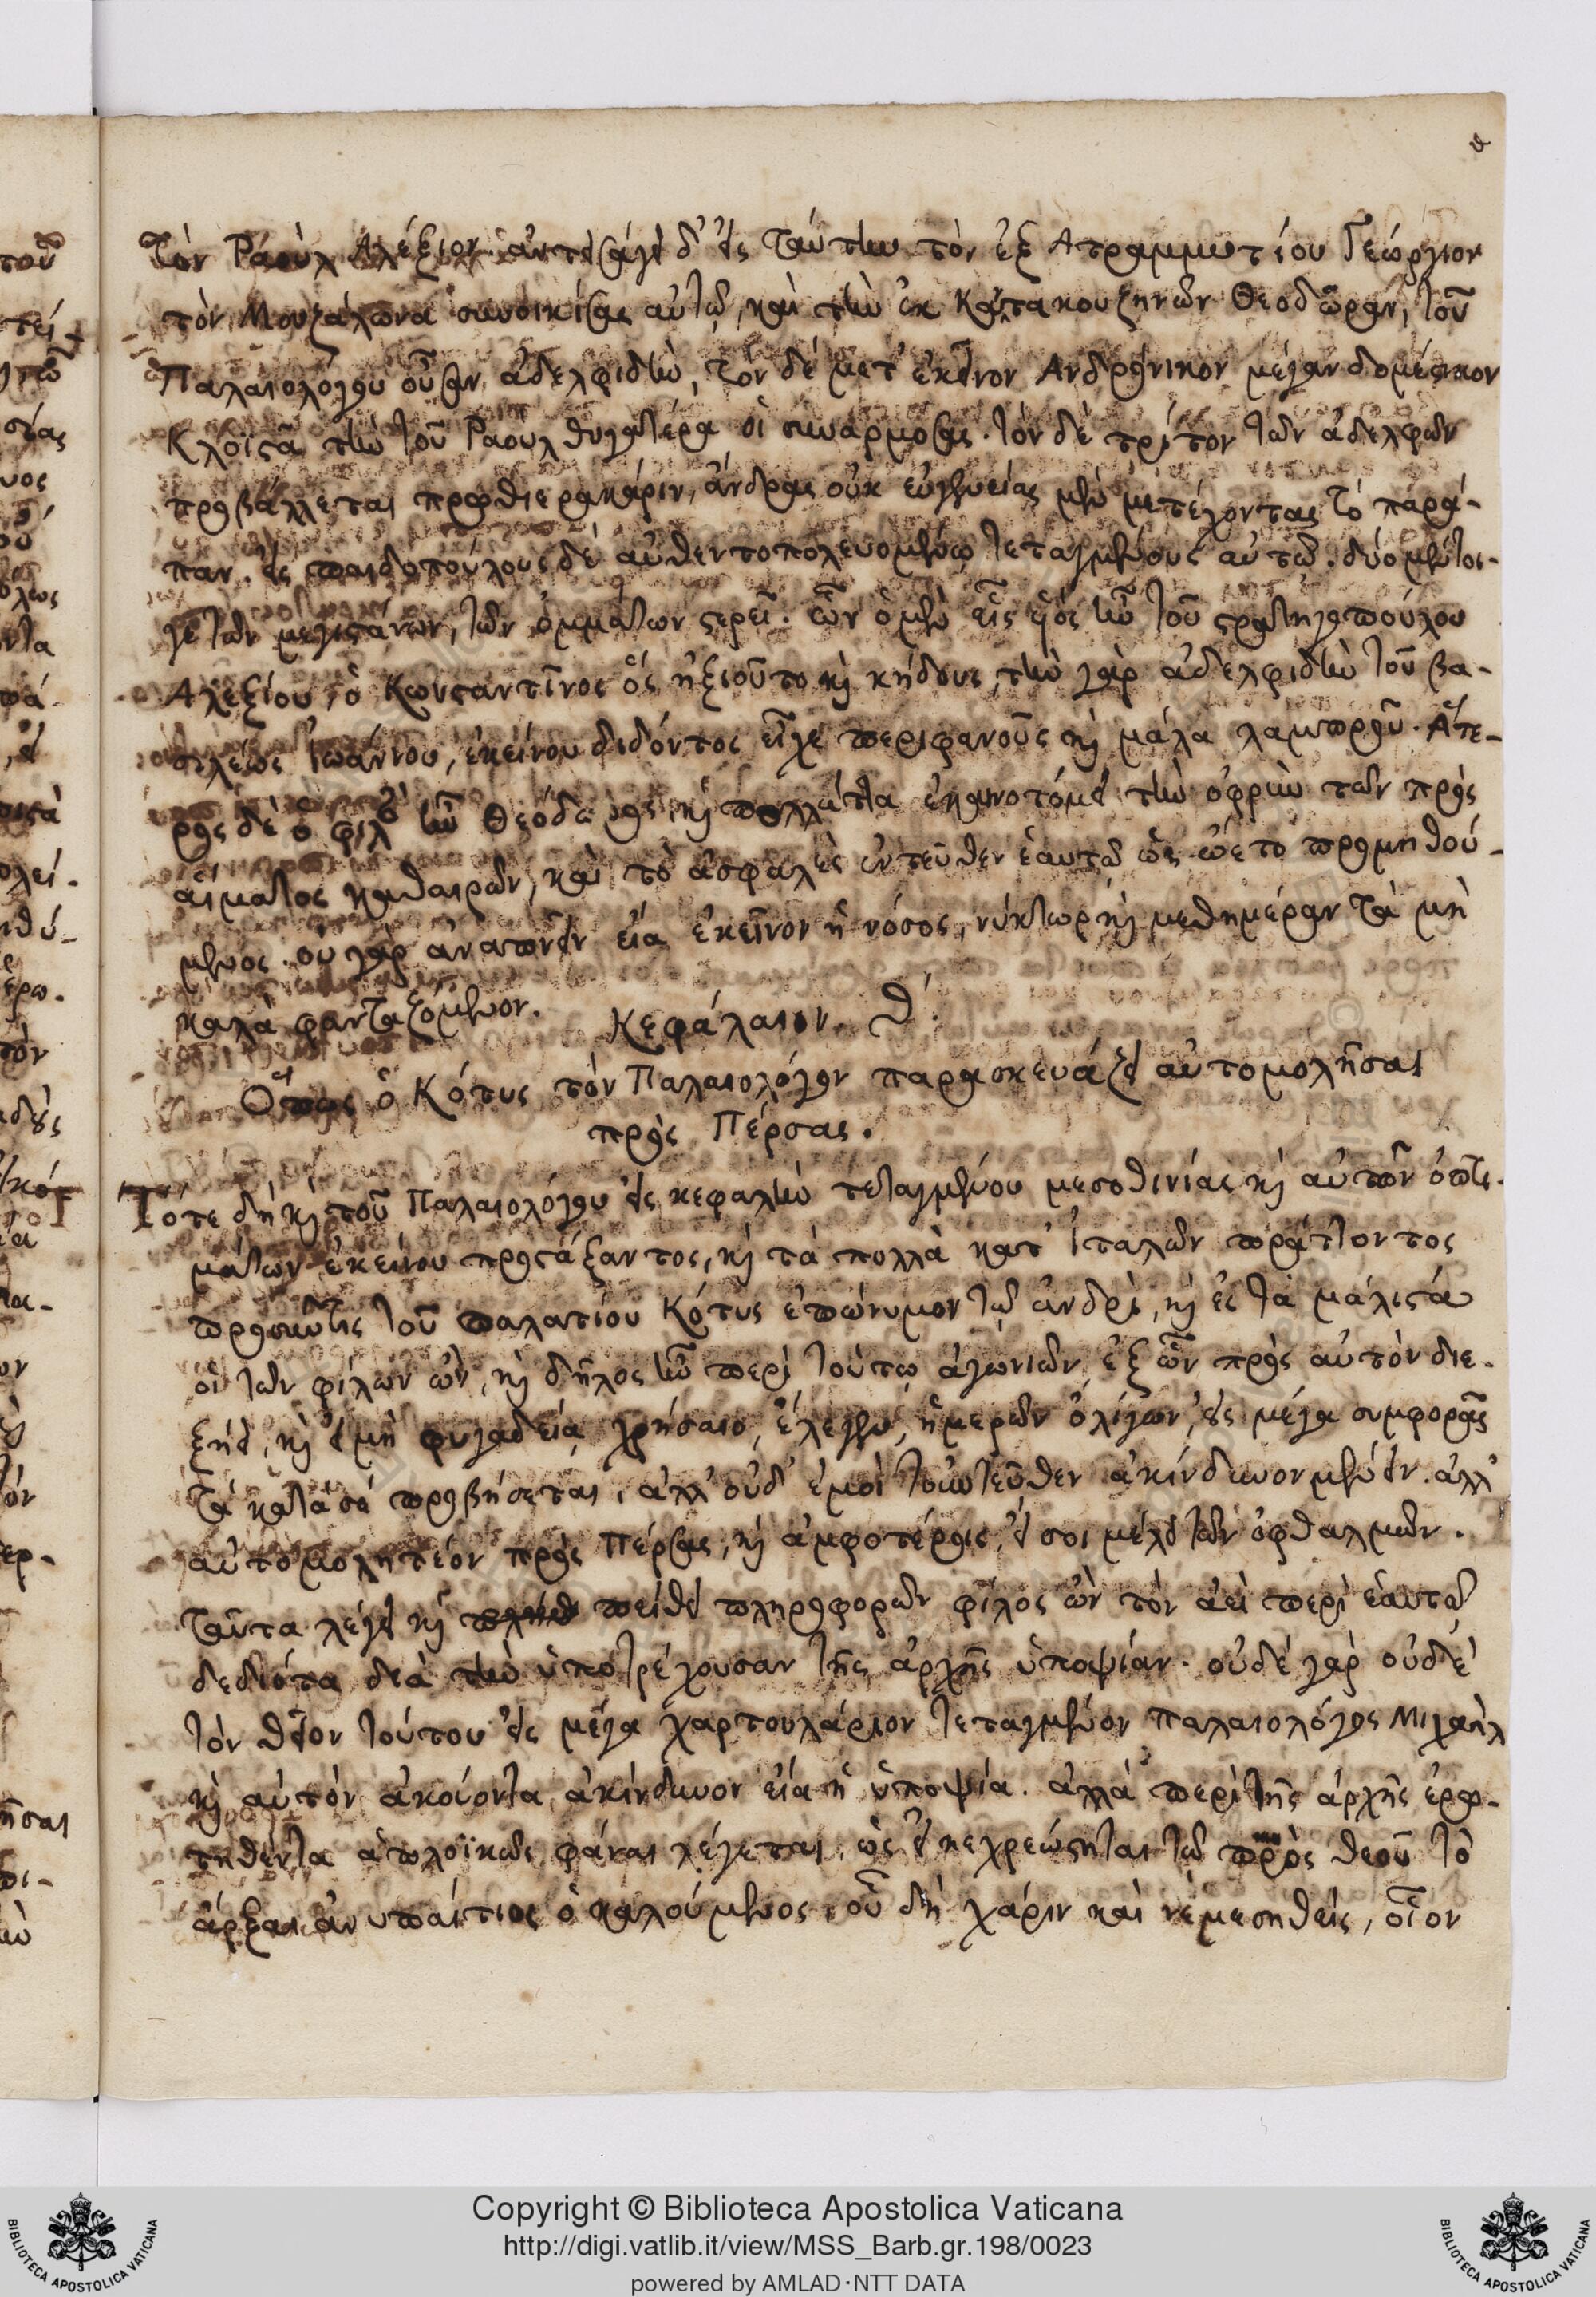 θ
τὸν Ῥαοὺλ Ἀλέξιον. ἀντεισάγει δ' εἰς ταύτην τὸν ἐξ Ἀτραμμυτίου Γεώργιον
τὸν Μουζάλωνα συνοικίσας αὐτῷ, καὶ τὴν ἐκ Καντακουζηνῶν Θεοδώραν, τοῦ
Παλαιολόγου οὖσαν ἀδελφιδὴν, τὸν δὲ μετ' ἐκεῖνον Ἀνδρόνικον μέγαν δομέστικον
τὴν τοῦ Ῥαοὺλ θυγατέρα οἱ συναρμόσας. τὸν δὲ τρίτον τῶν ἀδελφῶν
προβάλλεται πρωθιερακάριν, ἄνδρας οὐκ εὐγενείας μὲν μετέχοντας τὸ παρά-
παν. εἰς παιδοπούλους δὲ τεταγμένους αὐτῷ. δύο μέν τοι-
γε τῶν μεγιστάνων, τῶν ὀμμάτων στερεῖ. ὧν ὁ μὲν εἷς υἱὸς ἦν τοῦ στρατηγοπούλου
Ἀλεξίου, ὁ Κωνσταντῖνος ὃς ἠξιοῦτο καὶ κήδους, τὴν γὰρ ἀδελφιδὴν τοῦ βα-
σιλέως Ἰωάννου, ἐκείνου διδόντος εἶχε περιφανοῦς καὶ μάλα λαμπροῦ. Ἅτε-
ρος δὲ ὁ φιλῆς ἦν Θεόδωρος, καὶ πολλάττα ἐκαινοτόμει τὴν ὀφρὺν τῶν πρὸς
αἵματος καθαιρῶν, καὶ τὸ ἀσφαλὲς ἐντεῦθεν ἑαυτῷ ὡς ᾤετο προμηθού-
μενος. οὐ γὰρ ἀναπνεῖν εἴα ἐκεῖνον ἡ νόσος, νύκτωρ καὶ μεθημέραν τὰ μὴ
καλὰ φανταζόμενον.
Κεφάλαιον θ΄.
Ὅπως ὁ Κότυς τὸν Παλαιολόγον παρασκευάζει αὐτομολῆσαι
πρὸς Πέρσας.
Τότε δὴ καὶ τοῦ Παλαιολόγου εἰς κεφαλὴν τεταγμένου μεσοθινίας καὶ αὐτῶν ὀπτι-
μάτων ἐκείνου προστάξαντος, καὶ τὰ πολλὰ κατ' Ἰταλῶν πράττοντος
τοῦ παλατίου Κότυς ἐπώνυμον τῷ ἀνδρὶ, καὶ ἐς τὰ μάλιστά
οἱ τῶν φίλων ὢν, καὶ δῆλος ἦν περὶ τούτῳ ἀγωνιῶν, ἐξ ὧν πρὸς αὐτὸν διε-
ξήει, καὶ εἰ μὴ φυγαδείᾳ χρήσαιο, ἔλεγεν, ἡμερῶν ὀλίγων, εἰς μέγα συμφορᾶς
τὰ κατὰ σὲ προβήσεται, ἀλλ' οὐδ' ἐμοὶ τοὐντεῦθεν ἀκίνδυνον μένειν. ἀλλ'
αὐτομολητέον πρὸς Πέρσας, καὶ ἀμφοτέροις, εἴ σοι μέλει τῶν ὀφθαλμῶν.
ταῦτα λέγει καὶ πείθει πληροφορῶν φίλος ὢν τὸν ἀεὶ περὶ ἑαυτῷ
δεδιότα διὰ τὴν ὑποτρέχουσαν τῆς ἀρχῆς ὑποψίαν. οὐδὲ γὰρ οὐδὲ
τὸν θεῖον τούτου εἰς μέγα χαρτουλάριον τεταγμένον Παλαιολόγος Μιχαὴλ
καὶ αὐτὸν ἀκούοντα ἀκίνδυνον εἴα ἡ ὑποψία. ἀλλὰ περὶ τῆς ἀρχῆς ἐρω-
τηθέντα ἁπλοϊκῶς φάναι λέγεται, ὡς εἰ κεχρεώστηται τῷ πρὸς θεοῦ τὸ
ἄρξαι ἀνυπαίτιος ὁ καλούμενος. οὗ δὴ χάριν καὶ νεμεσηθεὶς, οἷον
Copyright © Biblioteca Apostolica Vaticana
http://digi.vatlib.it/view/MSS_Barb.gr.198/0023
powered by AMLAD·NTT DATA
BIBLIOTECA APOSTOLICA VATICANA
BIBLIOTECA APOSTOLICA VATICANA